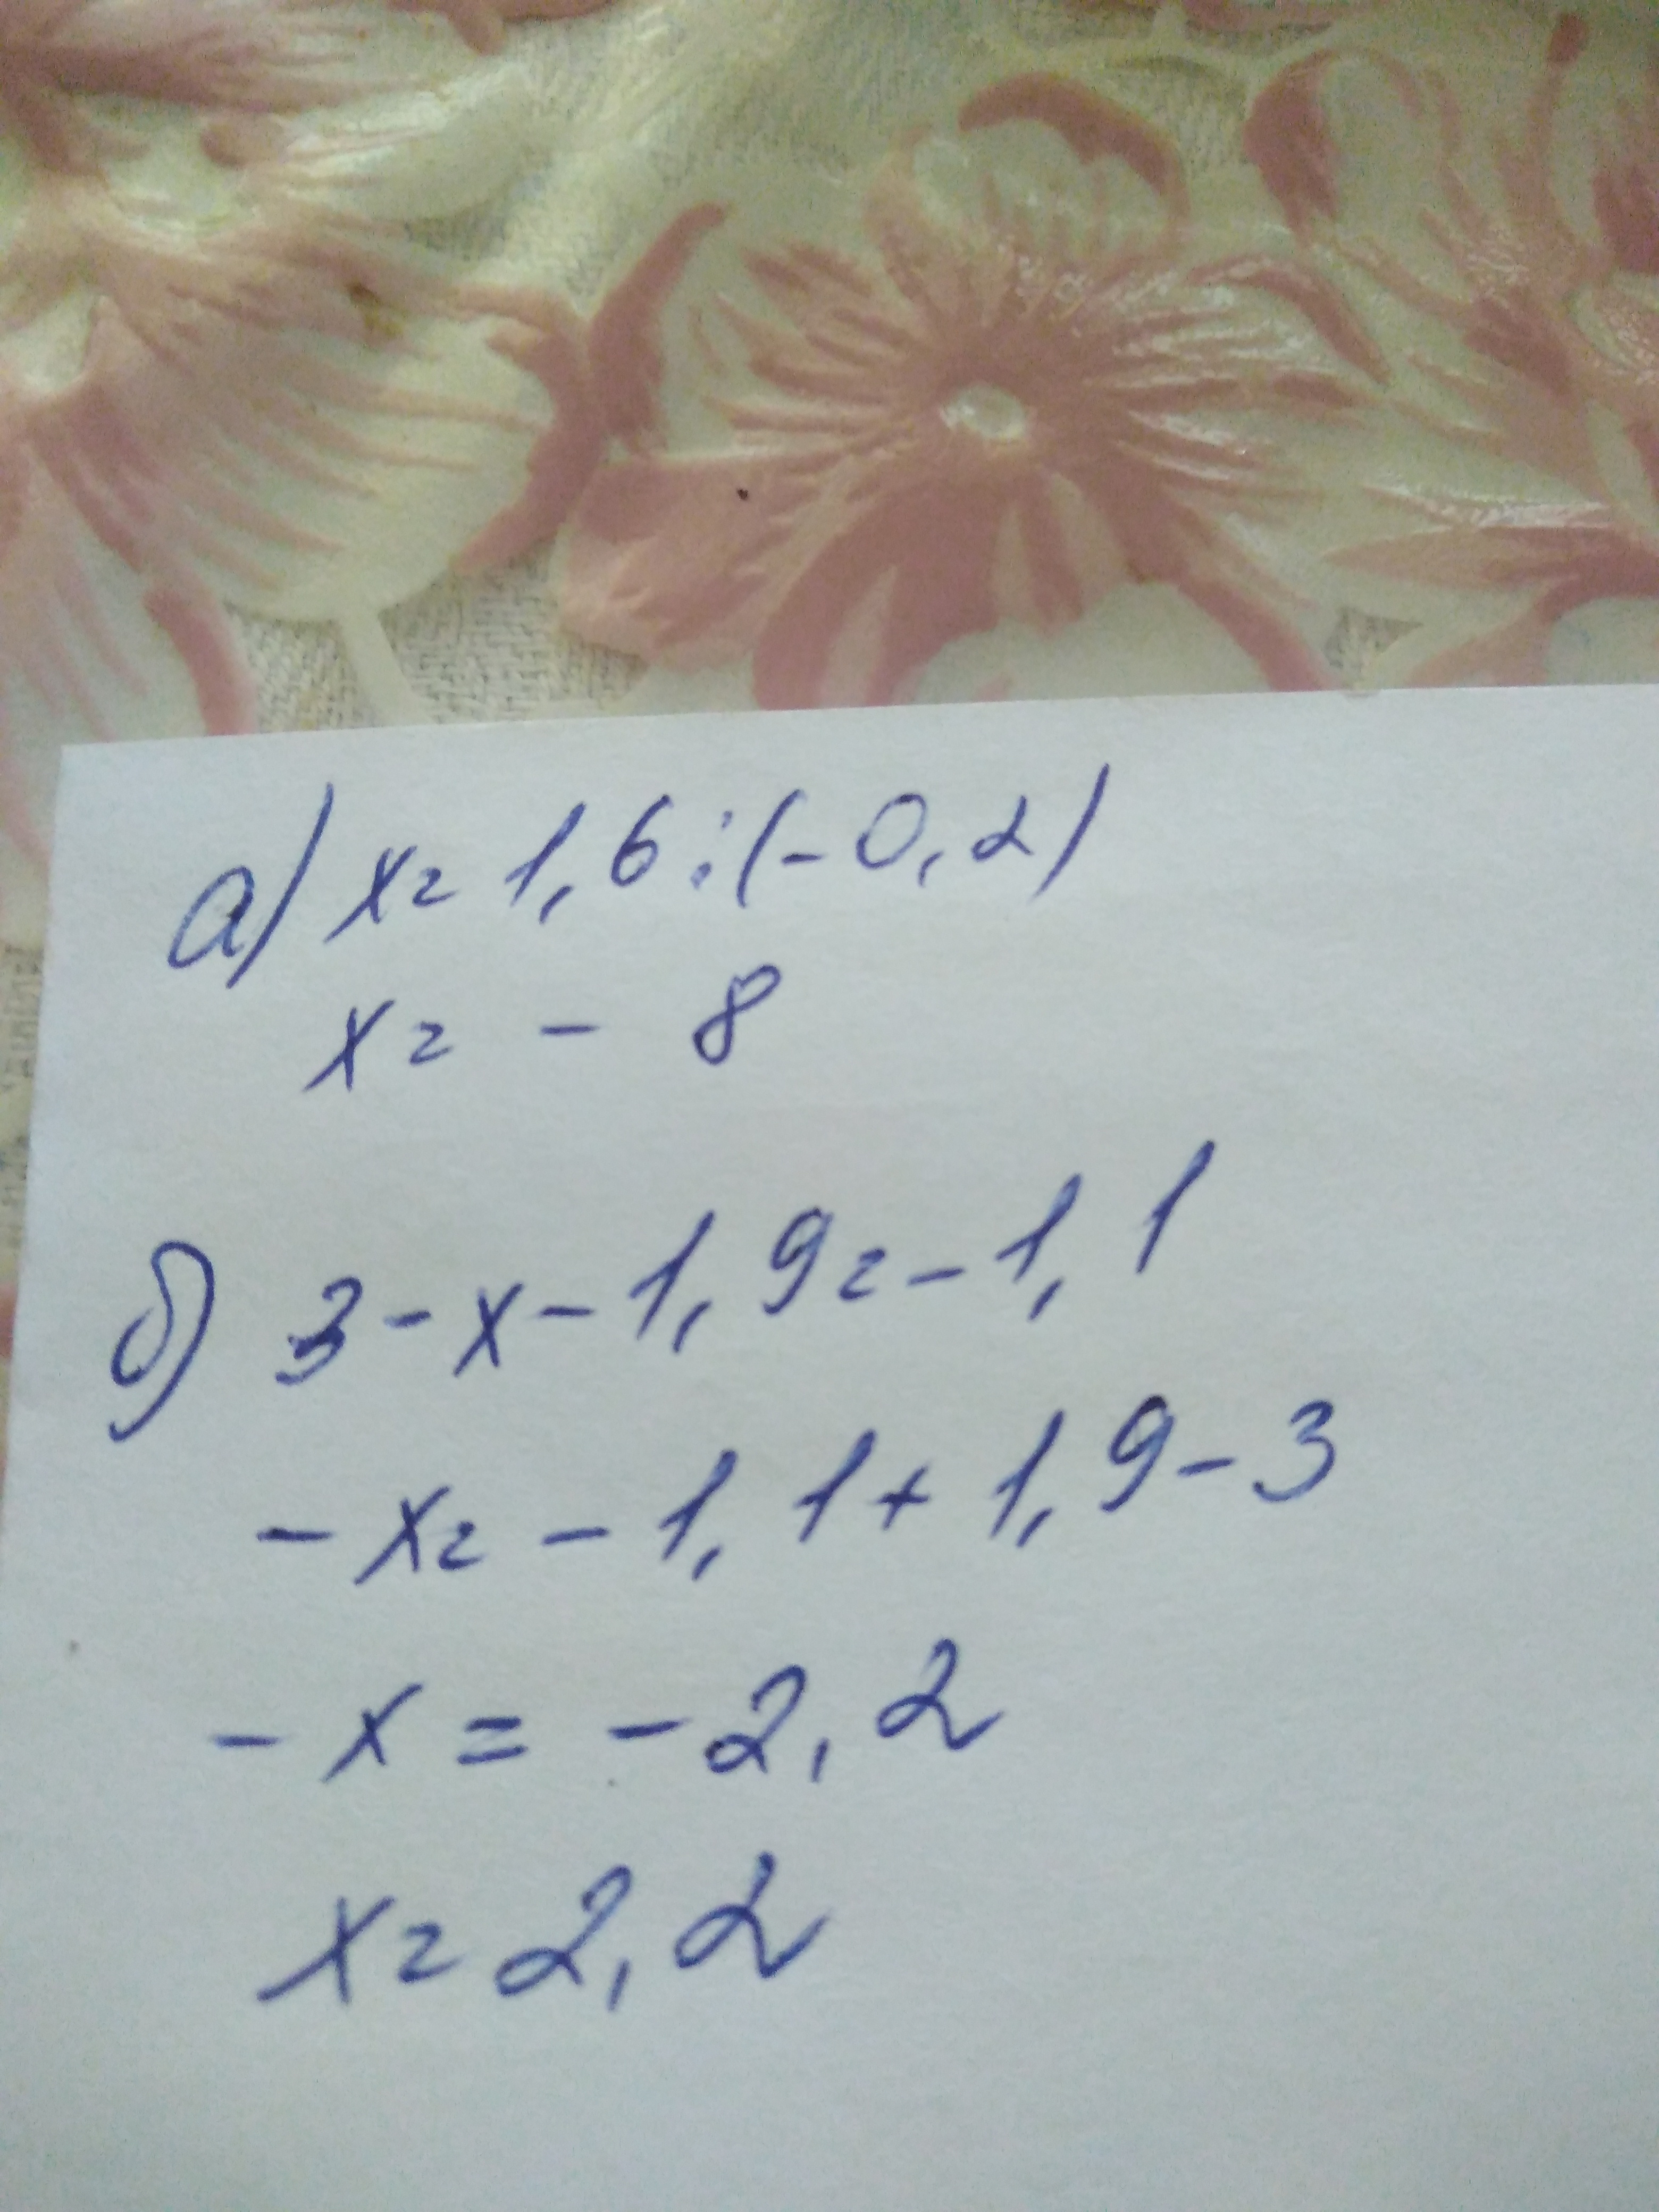 а) x = 1,6 : (-0,2)
x = - 8
б) 3 - x - 1,9 = - 1,1
- x = - 1,1 + 1,9 - 3
- x = - 2,2
x = 2,2